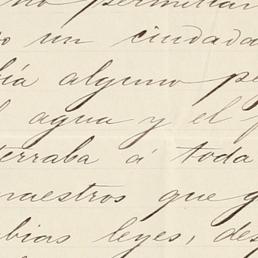 no permitían
o un ciudada
bía alguno pe
l agua y el
terraba á toda
maestros que g
bias leyes, des